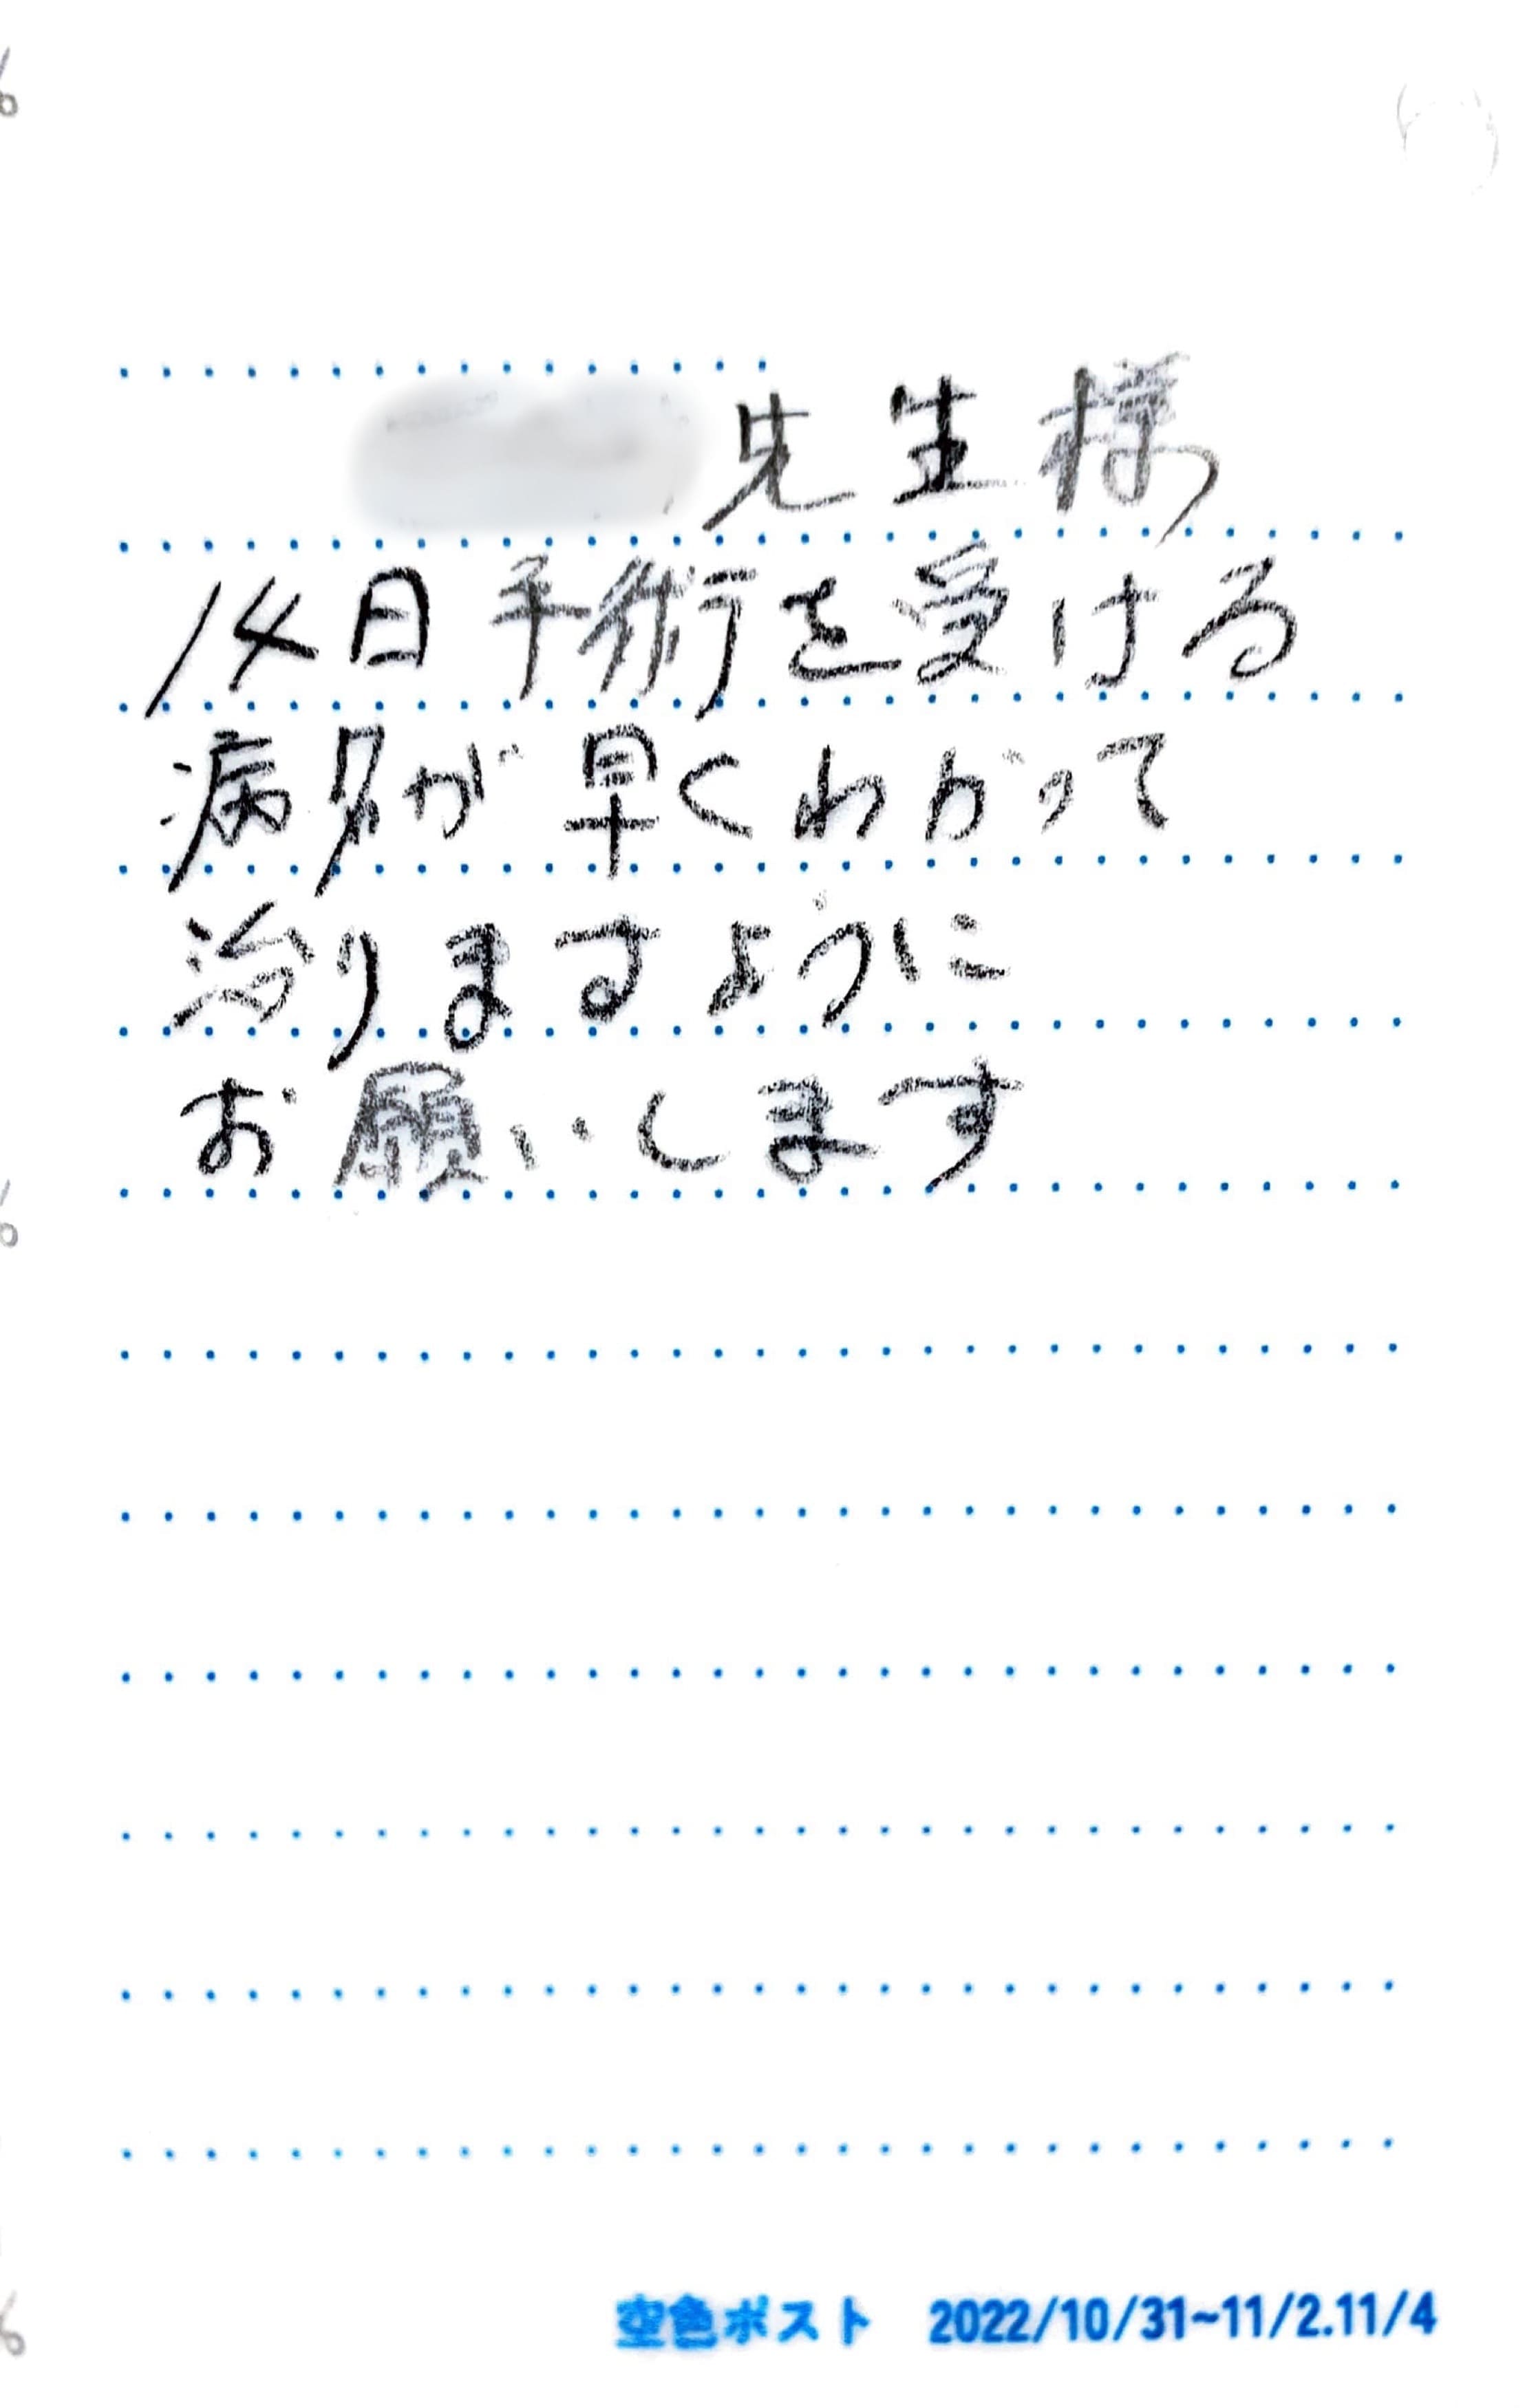 先生様
14日手術を受ける
病名が早くわかって
治りますように
お願いします
空色ポスト 2022/10/31~11/2.11/4